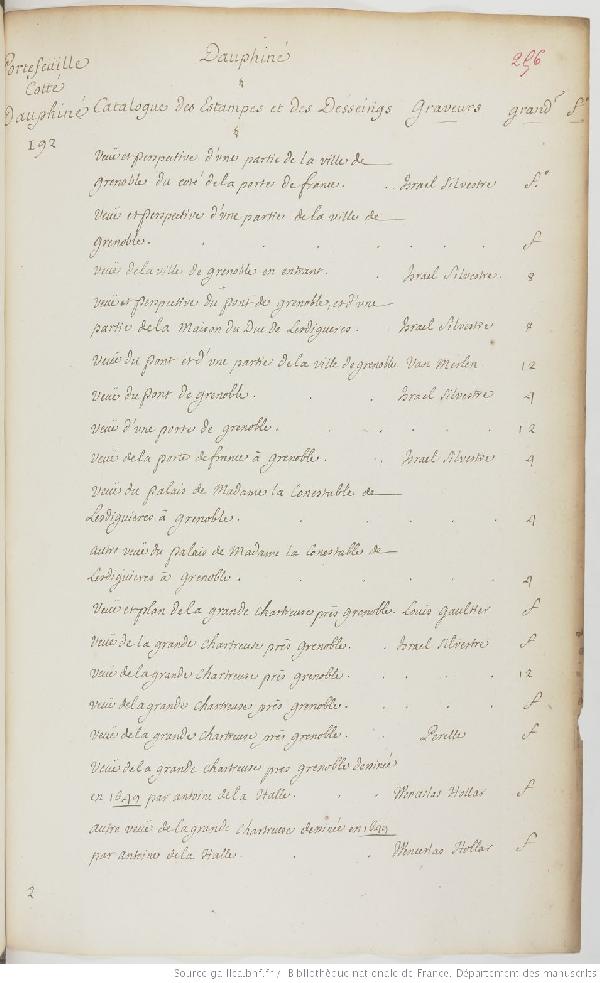 Dauphiné
256
Portefeuille
Cotté
Dauphiné
192
Catalogue des Estampes et des Desseings Graveurs grandr. fo.
Veüe et perspective d'une partie de la ville de
grenoble du costé de la porte de france. Israel Silvestre fo.
Veüe et perspective d'une partie de la ville de
grenoble. f
Veüe de la ville de grenoble en entrant. Israel Silvestre. 8
Veüe et perspective du pont de grenoble, et d'une
partie de la Maison du Duc de Lesdigueres. Israel Silvestre 8
Veüe du pont et d'une partie de la ville de grenoble Van Merlen 12
Veüe du pont de grenoble. Israel Silvestre 4
Veüe d'une porte de grenoble. 12
Veüe de la porte de france à grenoble. Israel Silvestre 4
Veüe du palais de Madame la Conestable de
Lesdiguieres à grenoble. 4
autre veüe du palais de Madame la Conestable de
Lesdiguieres à grenoble. 4
Veüe et plan de la grande chartreuse près grenoble. Louis Gaultier f
Veüe de la grande chartreuse près grenoble. Israel Silvestre f
Veüe de la grande chartreuse près grenoble. 12
Veüe de la grande chartreuse près grenoble. f
Veüe de la grande chartreuse près grenoble. Perelle f
Veüe de la grande chartreuse près grenoble dessinée
en 1649 par antoine de la Halle. Wenceslas Hollar f
autre veüe de la grande chartreuse dessinée en 1649
par antoine de la Halle. Wenceslas Hollar f
2
Source gallica.bnf.fr / Bibliothèque nationale de France. Département des manuscrits